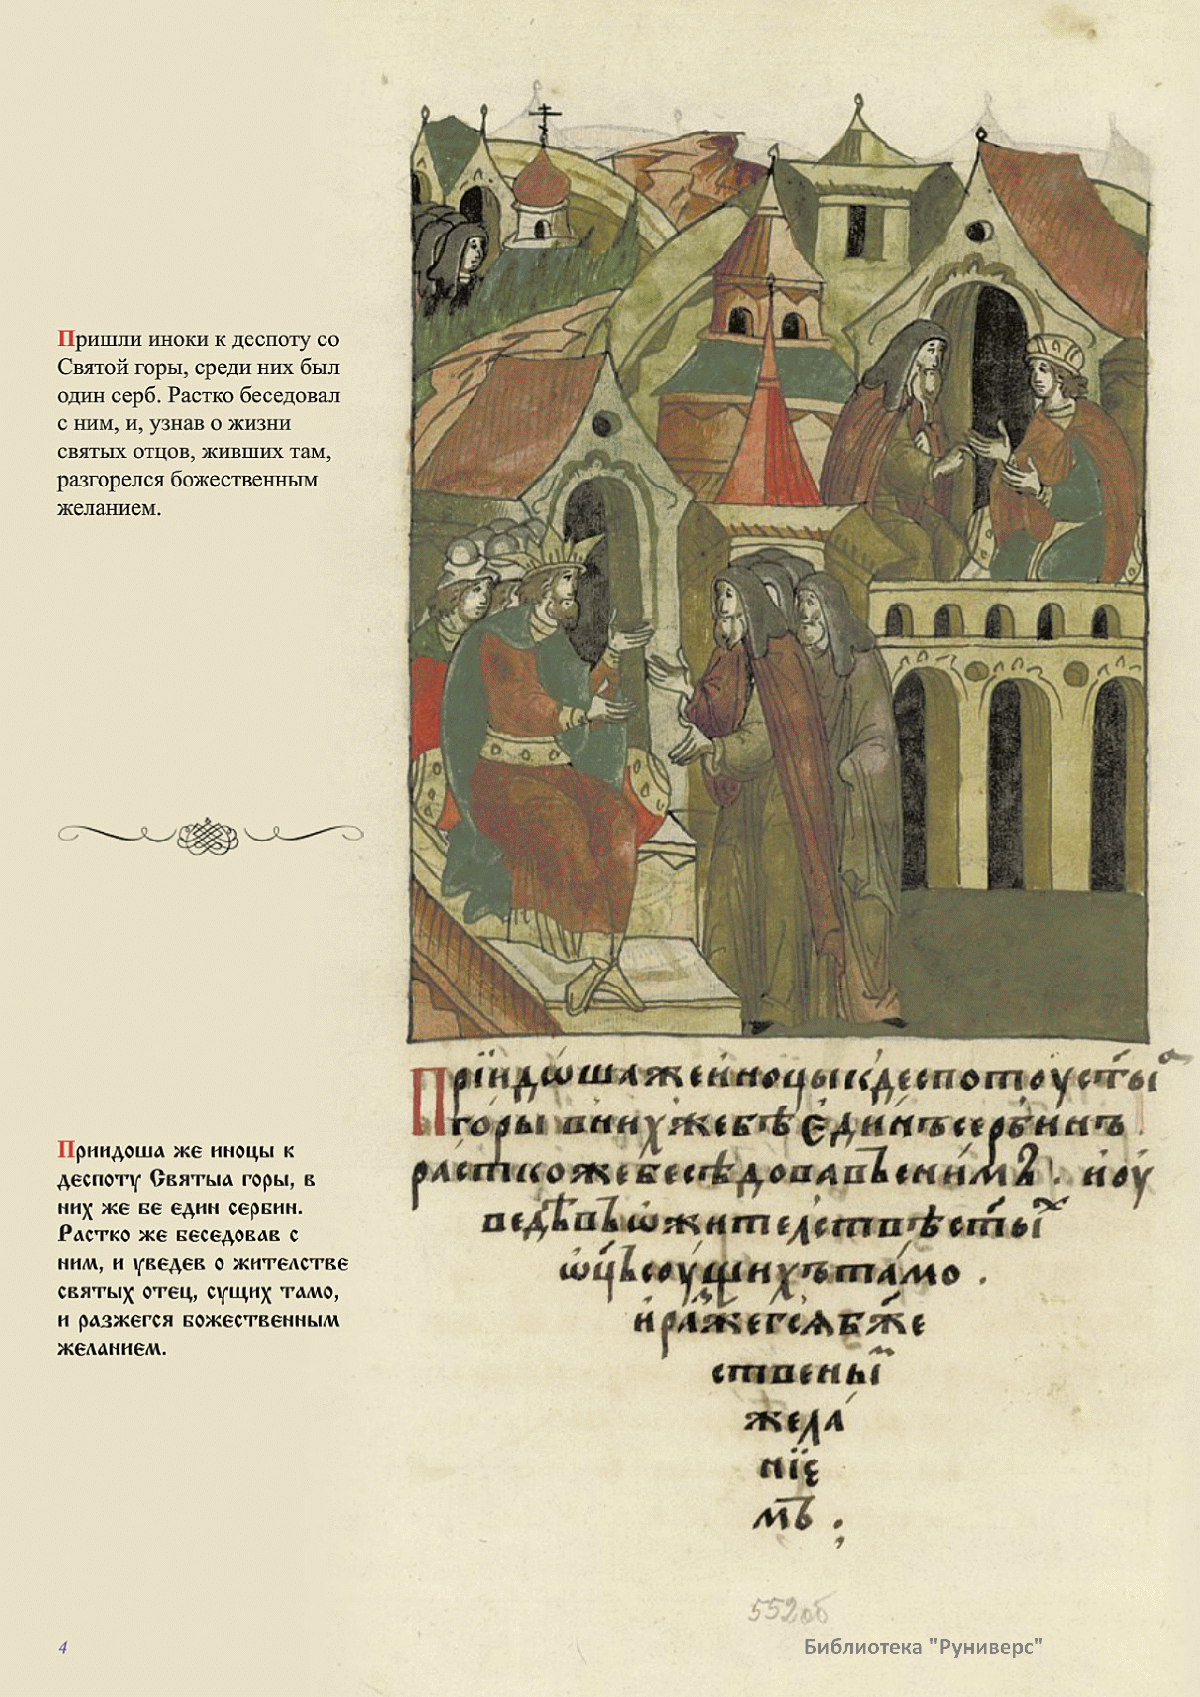 Пришли иноки к деспоту со
Святой горы, среди них был
один серб. Растко беседовал
с ним, и, узнав о жизни
святых отцов, живших там,
разгорелся божественным
желанием.
Приидоша же иноцы к
деспоту Святыа горы, в
них же бе един сербин.
Растко же беседовав с
ним, и уведев о жителстве
святых отец, сущих тамо,
и разжегся божественным
желанием.
Прїидѡшажеиноцыкдеспотоусты
горы внихжебѣединъсербинъ
расткожебесѣдовавьснимъ. иоу
ведѣвьѡжителствѣсты̆х
ѡц҃ьсоущихътамо .
иражегсѧбж҃е
ствены
жела
нїе
мь :
552об
4
Библиотека "Руниверс"